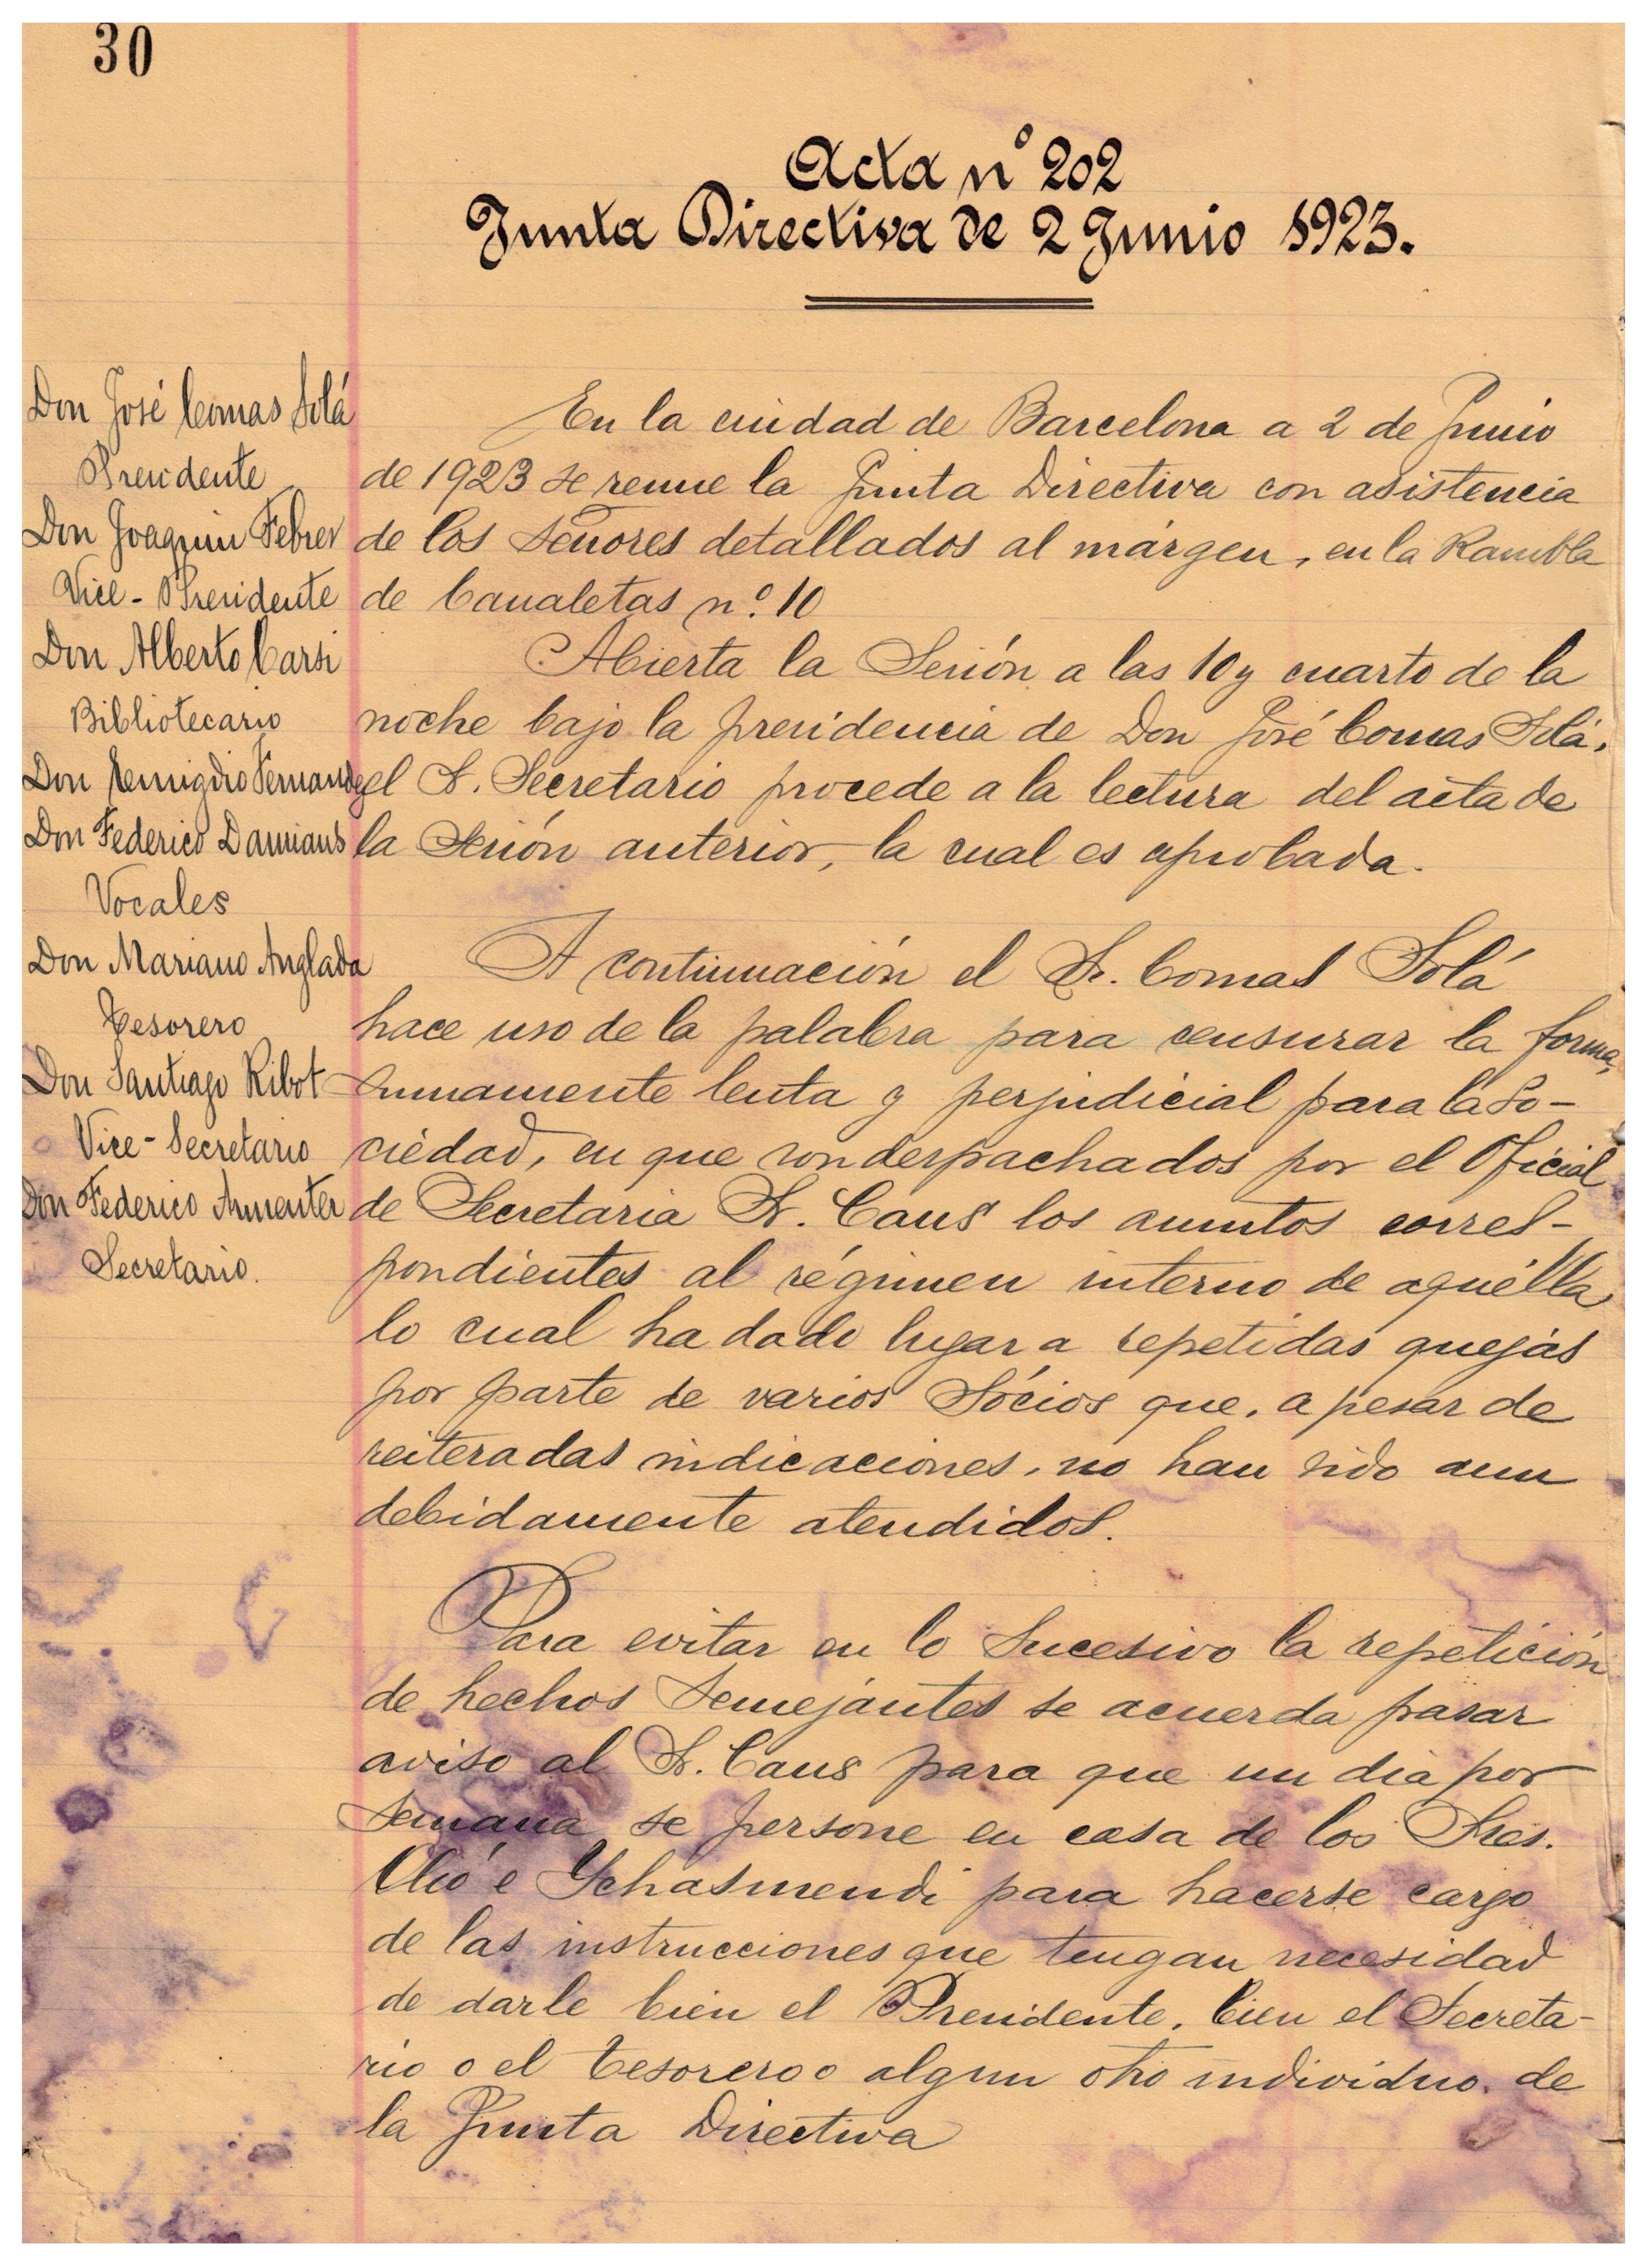 30
Acta nº 202
Junta Directiva de 2 Junio 1923.
Don José Comas Solá
Presidente
Don Joaquin Febrer
Vice-Presidente
Don Alberto Carsi
Bibliotecario
Don Remigdio Fernandez
Don Federico Damians
Vocales
Don Mariano Anglada
Tesorero
Don Santiago Ribot
Vice-Secretario
Don Federico Armenter
Secretario.
En la ciudad de Barcelona a 2 de Junio
de 1923 se reune la Junta Directiva con asistencia
de los señores detallados al márgen, en la Rambla
de Canaletas nº. 10
Abierta la Sesión a las 10 y cuarto de la
noche bajo la presidencia de Don José Comas Solá,
el Sr. Secretario procede a la lectura del acta de
la Sesión anterior, la cual es aprobada.
A continuación el Sr. Comas Solá
hace uso de la palabra para censurar la forma,
sumamente lenta y perjudicial para la So-
ciedad, en que son despachados por el Oficial
de Secretaria Sr. Caus los asuntos corres-
pondientes al régimen interno de aquélla
lo cual ha dado lugar a repetidas quejas
por parte de varios Sócios que, a pesar de
reiteradas indicaciones, no han sido aun
debidamente atendidos.
Para evitar en lo sucesivo la repetición
de hechos semejantes se acuerda pasar
aviso al Sr. Caus para que un dia por
semana se persone en casa de los Sres.
Elió e Ychasmendi para hacerse cargo
de las instrucciones que tengan necesidad
de darle bien el Presidente, bien el Secreta-
rio o el Tesorero o algun otro individuo de
la Junta Directiva